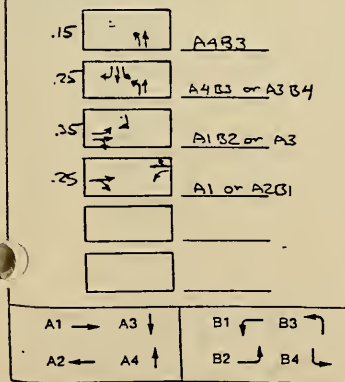 .15 A4B3
.25 A4B3 or A3B4
.35 A1B2 or A3
.25 A1 or A2B1
A1 A3 B1 B3
A2 A4 B2 B4